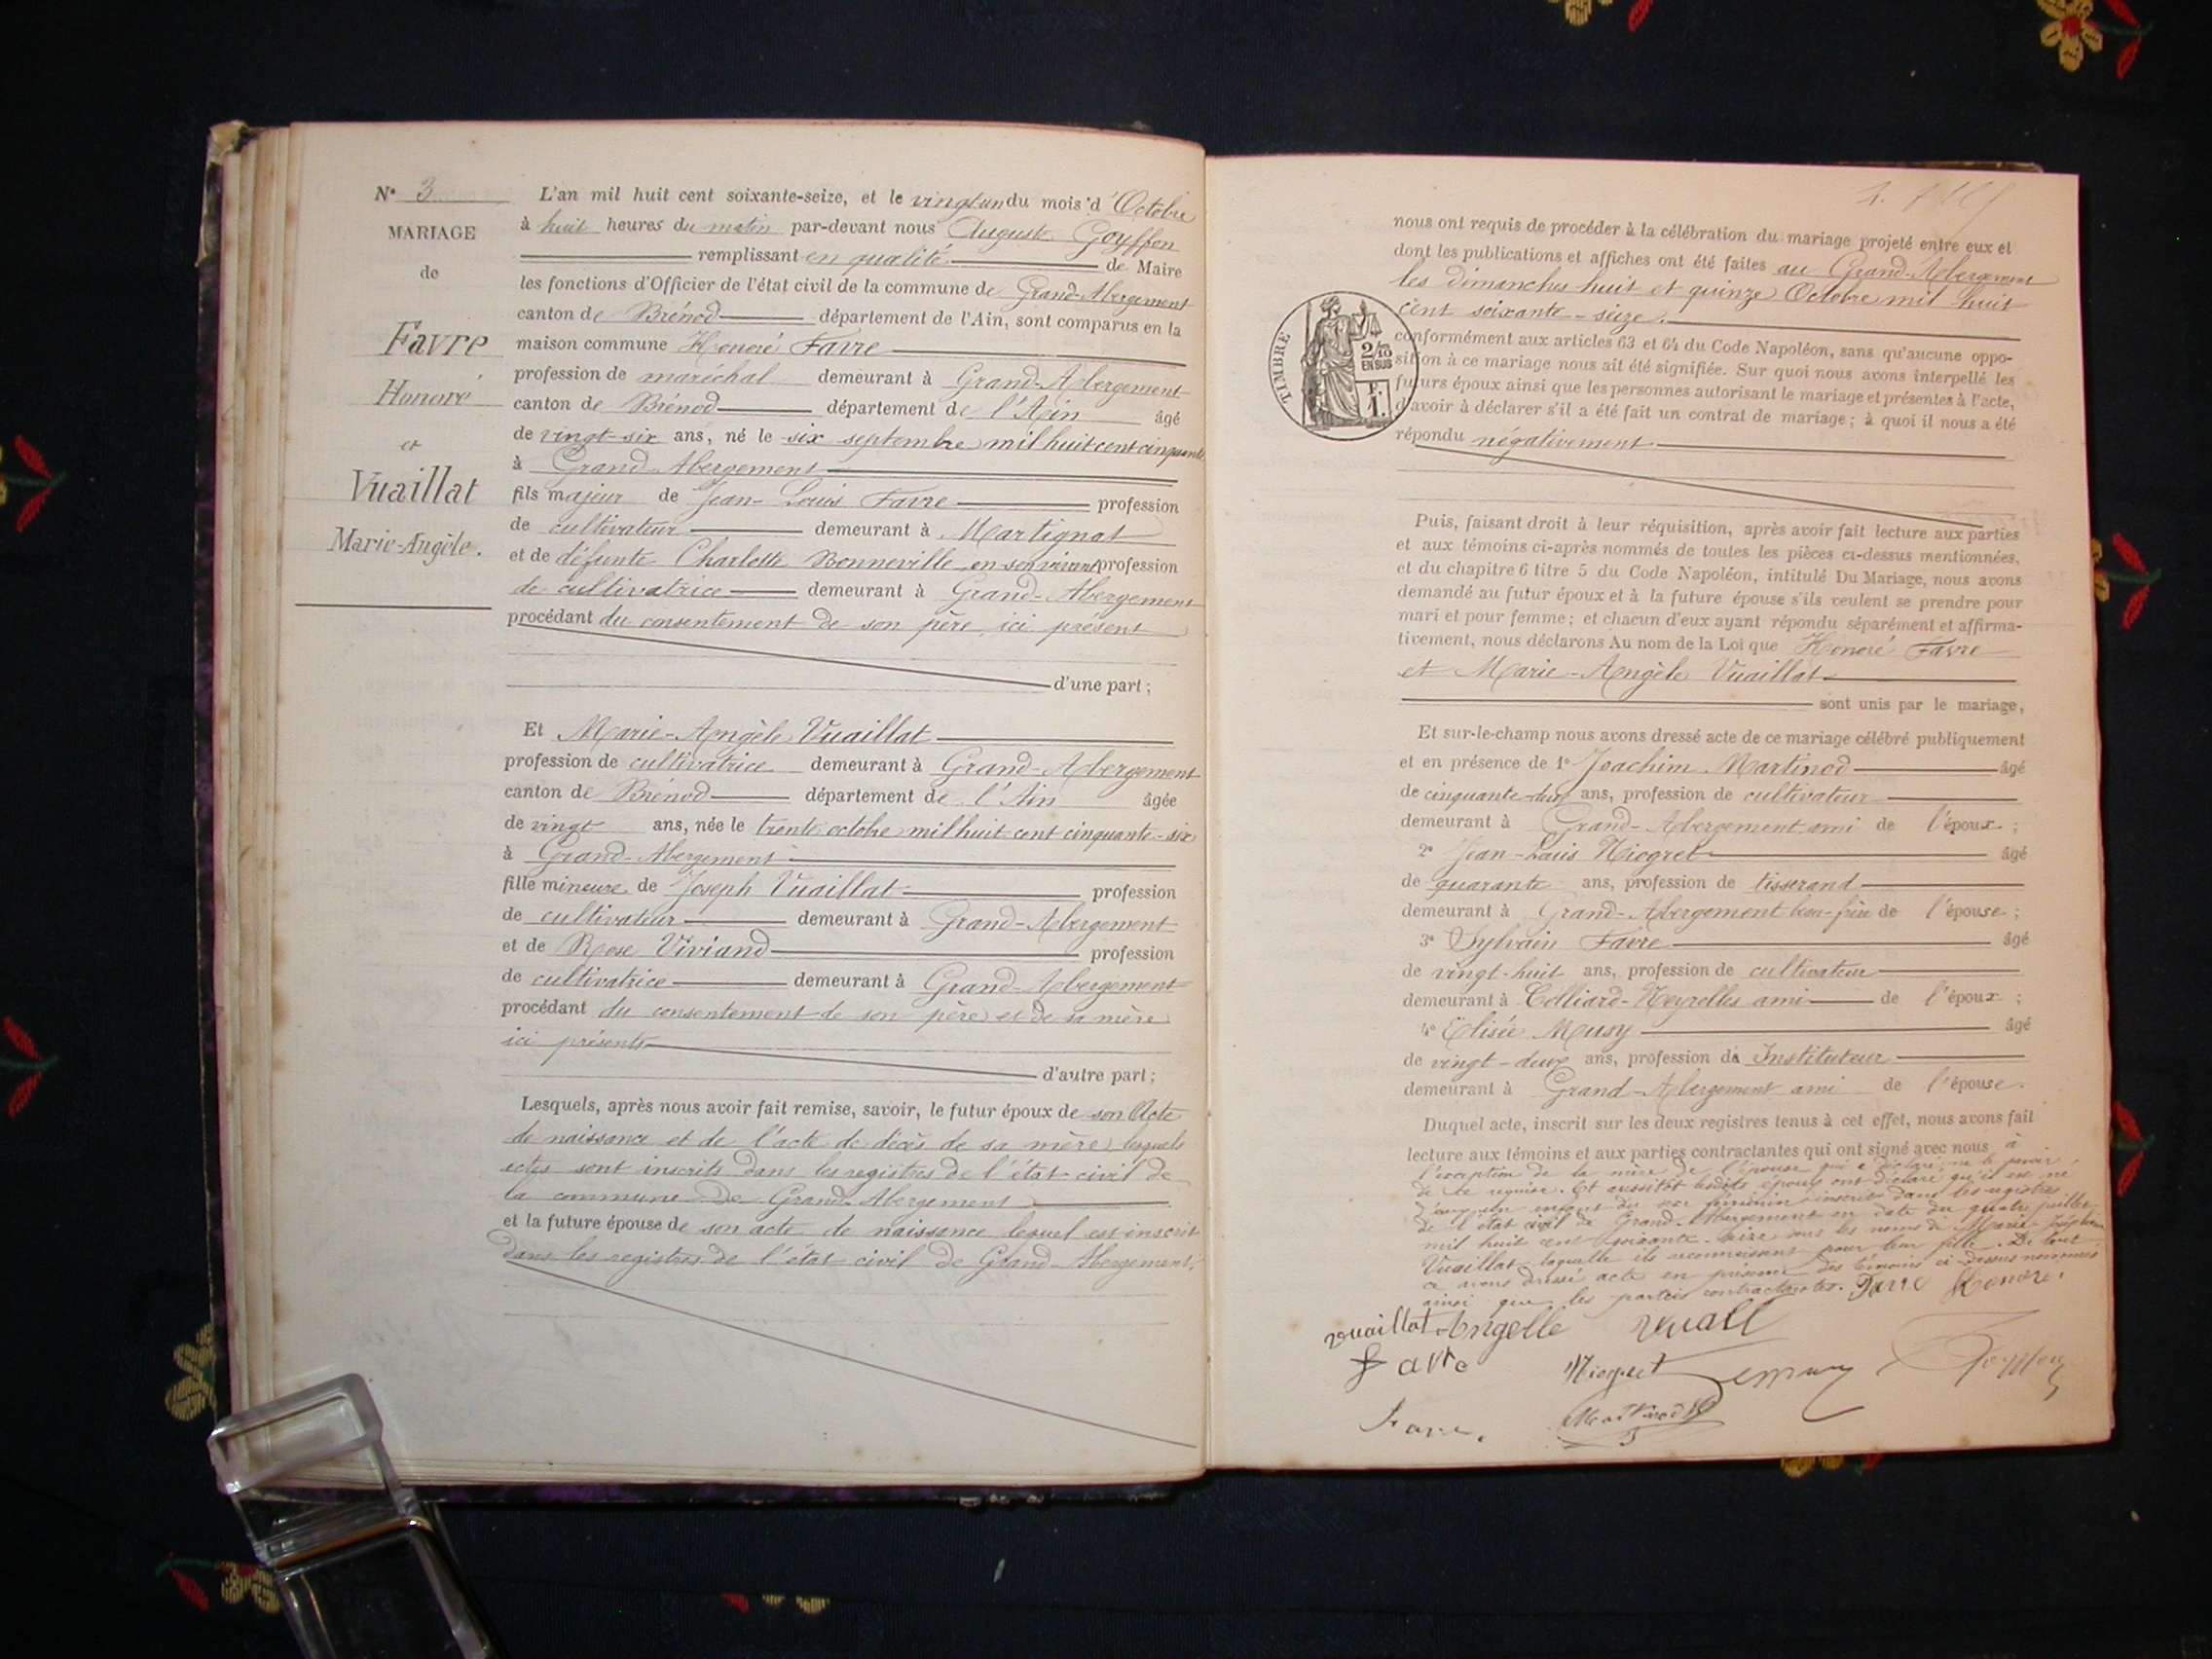 N° 3
MARIAGE
de
Favre
Honoré
et
Vuaillat
Marie-Angèle.
L'an mil huit cent soixante-seize, et le vingt un du mois d'Octobre
à huit heures du matin par-devant nous Auguste Goyffon
remplissant en qualité de Maire
les fonctions d'Officier de l'état civil de la commune de Grand-Abergement
canton de Brénod département de l'Ain, sont comparus en la
maison commune Honoré Favre
profession de maréchal demeurant à Grand-Abergement
canton de Brénod département de l'Ain âgé
de vingt-six ans, né le six septembre mil huit cent cinquante
à Grand-Abergement
fils majeur de Jean-Louis Favre profession
de cultivateur demeurant à Martignat
et de défunte Charlotte Bonneville en son vivant profession
de cultivatrice demeurant à Grand-Abergement
procédant du consentement de son père, ici présent
d'une part ;
Et Marie-Angèle Vuaillat
profession de cultivatrice demeurant à Grand-Abergement
canton de Brénod département de l'Ain âgée
de vingt ans, née le trente octobre mil huit cent cinquante-six
à Grand-Abergement
fille mineure de Joseph Vuaillat profession
de cultivateur demeurant à Grand-Abergement
et de Rose Viviand profession
de cultivatrice demeurant à Grand-Abergement
procédant du consentement de son père et de sa mère
ici présents
d'autre part ;
Lesquels, après nous avoir fait remise, savoir, le futur époux de son Acte
de naissance et de l'acte de décès de sa mère, lesquels
actes sont inscrits dans les registres de l'état-civil de
la commune de Grand-Abergement
et la future épouse de son acte de naissance lequel est inscrit
dans les registres de l'état-civil de Grand-Abergement.
nous ont requis de procéder à la célébration du mariage projeté entre eux et
dont les publications et affiches ont été faites au Grand-Abergement
les dimanches huit et quinze Octobre mil huit
cent soixante-seize.
TIMBRE
2/10
EN SUS
F.
1.
conformément aux articles 63 et 64 du Code Napoléon, sans qu'aucune oppo-
sition à ce mariage nous ait été signifiée. Sur quoi nous avons interpellé les
futurs époux ainsi que les personnes autorisant le mariage et présentes à l'acte,
d'avoir à déclarer s'il a été fait un contrat de mariage ; à quoi il nous a été
répondu négativement
Puis, faisant droit à leur réquisition, après avoir fait lecture aux parties
et aux témoins ci-après nommés de toutes les pièces ci-dessus mentionnées,
et du chapitre 6 titre 5 du Code Napoléon, intitulé Du Mariage, nous avons
demandé au futur époux et à la future épouse s'ils veulent se prendre pour
mari et pour femme ; et chacun d'eux ayant répondu séparément et affirma-
tivement, nous déclarons Au nom de la Loi que Honoré Favre
et Marie-Angèle Vuaillat
sont unis par le mariage,
Et sur-le-champ nous avons dressé acte de ce mariage célébré publiquement
et en présence de 1° Joachim Martinod âgé
de cinquante-deux ans, profession de cultivateur
demeurant à Grand-Abergement ami de l'époux ;
2° Jean-Louis Niogret âgé
de quarante ans, profession de tisserand
demeurant à Grand-Abergement beau-frère de l'épouse ;
3° Sylvain Favre âgé
de vingt-huit ans, profession de cultivateur
demeurant à Colliard-Neyrolles ami de l'époux ;
4° Elisée Musy âgé
de vingt-deux ans, profession dà Instituteur
demeurant à Grand-Abergement ami de l'épouse.
Duquel acte, inscrit sur les deux registres tenus à cet effet, nous avons fait
lecture aux témoins et aux parties contractantes qui ont signé avec nous à
l'exception de la mère de l'épouse qui a déclaré ne le savoir
de ce requise. Et aussitôt lesdits époux ont déclaré qu'il est né
d'eux un enfant du sexe féminin inscrit dans les registres
de l'état civil de Grand-Abergement en date du quatre juillet
mil huit cent soixante-seize sous les noms de Marie
Vuaillat laquelle ils reconnaissent pour leur fille. De tout
ce avons dressé acte en présence des témoins ci-dessus nommés
ainsi que les parties contractantes. Favre Honoré.
vuaillat Angelle vuall
favre Niogret Goyffon
Favre. Martinod